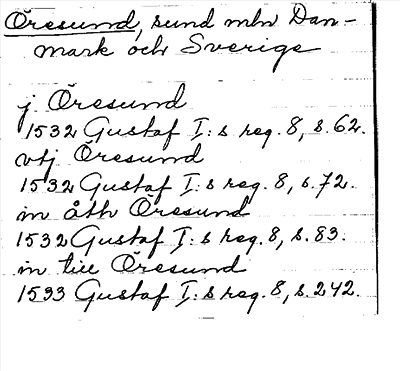 Öresund, sund mln Dan-
mark och Sverige
j Öresund
1532 Gustaf I:s reg. 8, s. 62.
vtj Öresund
1532 Gustaf I:s reg. 8, s. 72.
in åth Öresund
1532 Gustaf I:s reg. 8, s. 83.
in till Öresund
1533 Gustaf I:s reg. 8, s. 242.